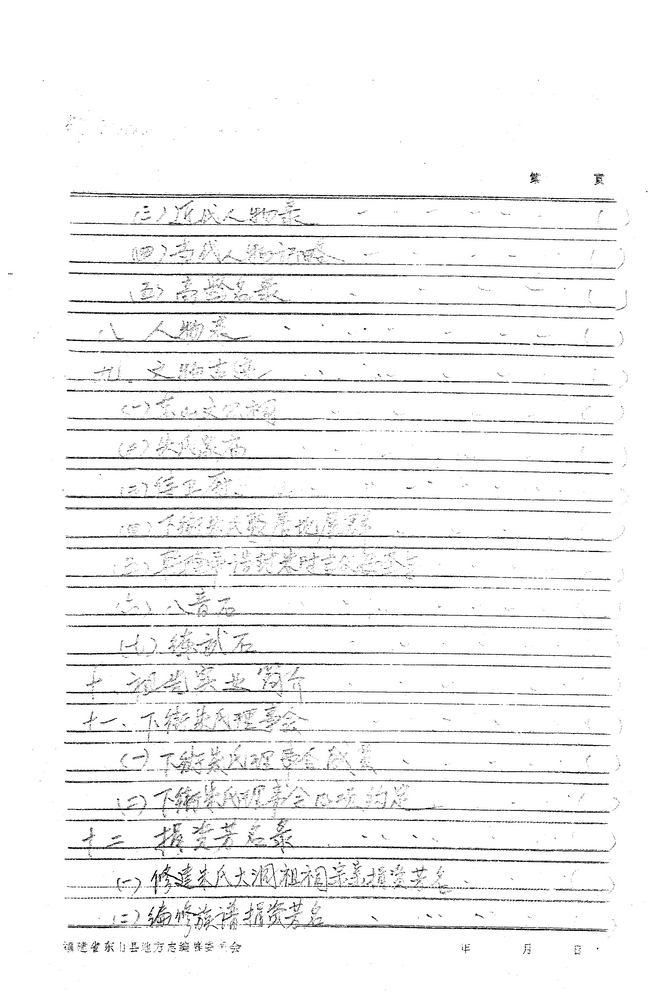 第 页
(三)近代人物录 ( )
(四)当代人物记略 ( )
(五)高龄名录 ( )
八 人物表 ( )
九、文物古迹 ( )
(一)东山文公祠 ( )
(二)朱氏家庙 ( )
(三) ( )
(四)下街朱氏 ( )
(五) ( )
(六)八音石 ( )
(七)练武石 ( )
十、祖先实业简介 ( )
十一、下街朱氏理事会 ( )
(一)下街朱氏理事会成员 ( )
(二)下街朱氏理事会 约定 ( )
十二 捐资芳名录 ( )
(一)修建朱氏大洞祖祠宗亲捐资芳名 ( )
(二)编修族谱捐资芳名 ( )
福建省东山县地方志编纂委员会 年 月 日